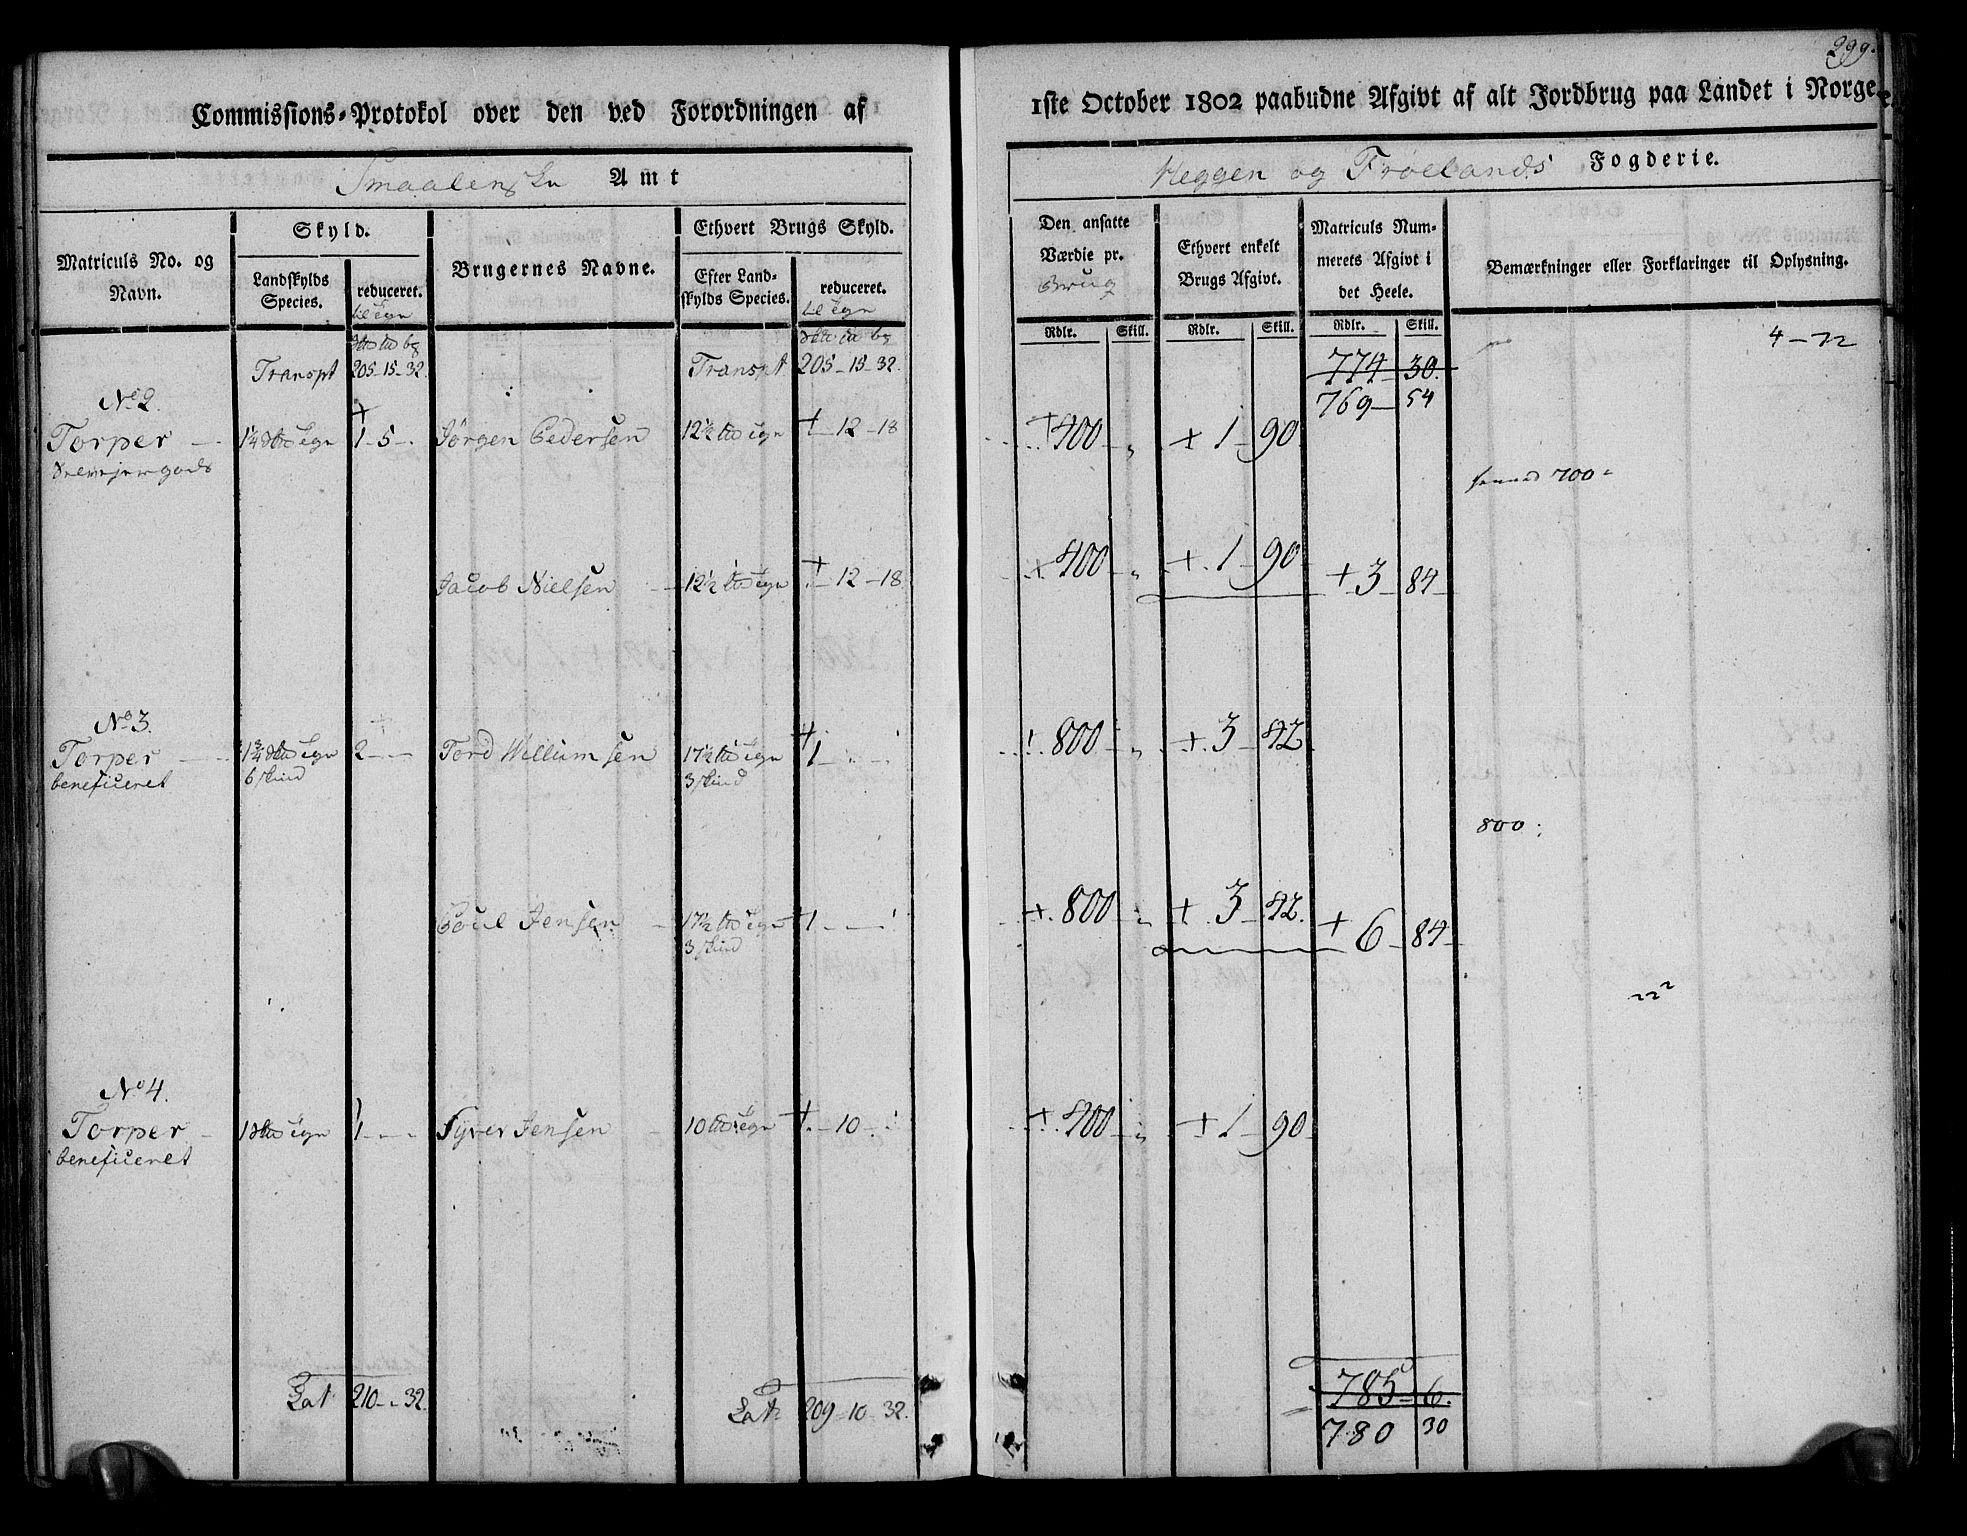 299.
Commissions-Protokol over den ved Forordningen af 1ste October 1802 paabudne Afgivt af alt Jordbrug paa Landet i Norge.
Smaalenske Amt
Heggen og Frøelands Fogderie.
Matriculs No. og Navn.
Skyld.
Landskylds Species.
reduceret.
Brugernes Navne.
Ethvert Brugs Skyld.
Efter Landskylds Species.
reduceret.
Den ansatte Værdie pr. Brug
Ethvert enkelt Brugs Afgivt.
Matriculs Nummerets Afgivt i det Heele.
Bemærkninger eller Forklaringer til Oplysning.
Rdlr. Skill. Rdlr. Skill. Rdlr. Skill.
Transpt 205-15-32. Transpt 205-15-32. 774 30.
769 54
4-72
No 2.
Torper 1-5- Jørgen Pedersen 12½ -12-18 + 400 + 1-90
700
Jacob Nielsen 12½ + -12-18 + 400 + 1 90 + 3 84
No 3.
Torper 1¾ 2 - - Tord Willumsen 17½ + 1 800 + 3 42
beneficeret 6 skind 3 skind
800
Poul Jensen 17½ + 1 + 800 + 3 42. + 6 84
3 skind
No 4.
Torper 1 1 - - Syver Jensen 10 + -10- + 400 + 1-90
beneficeret
Lat 210-"-32. Lat 209-10-32. 785-6.
780 30